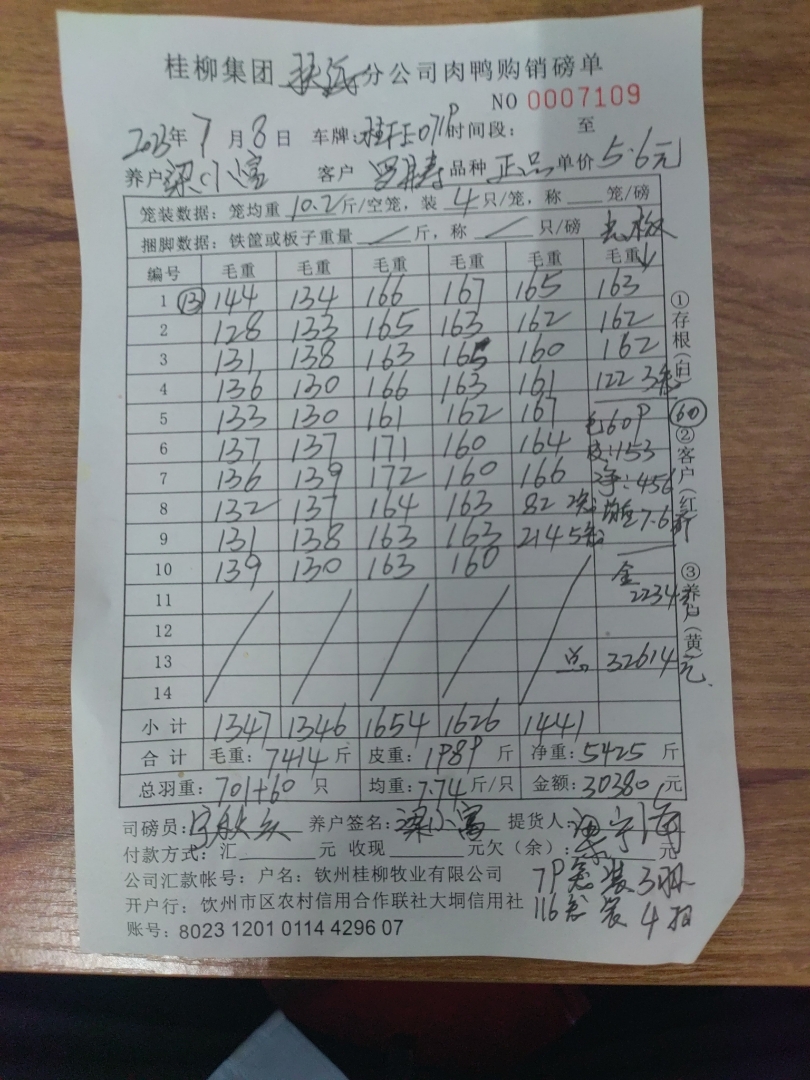 桂柳集团 扶绥 分公司肉鸭购销磅单
NO 0007109
2023年 7 月 8 日 车牌: 时间段: 至
养户 梁小富 客户 品种 正品 单价 5.6元
笼装数据: 笼均重 10.2 斤/空笼, 装 4 只/笼, 称 笼/磅
捆脚数据: 铁筐或板子重量 / 斤, 称 / 只/磅
编号 毛重 毛重 毛重 毛重 毛重 毛重↓
1 ⑬ 144 134 166 167 165 163
2 128 133 165 163 162 162
3 131 138 163 165 160 162
4 136 130 166 163 161 122 3笼
5 133 130 161 162 167 毛609
6 137 137 171 160 164 皮:153
7 136 139 172 160 166 净:456
8 132 137 164 163 82 2笼 均重7.6斤
9 131 138 163 163 214 5笼
10 139 130 163 160 金
11 2234元
12
13 总 32614元
14
小计 1347 1346 1654 1626 1441
合计 毛重: 7414 斤 皮重: 1989 斤 净重: 5425 斤
总羽重: 701+60 只 均重: 7.74 斤/只 金额: 30380 元
司磅员: 养户签名: 梁小富 提货人:
付款方式: 汇 元 收现 元欠(余): 元
公司汇款帐号: 户名: 钦州桂柳牧业有限公司
79笼装3羽
开户行: 钦州市区农村信用合作联社大垌信用社
116笼装4羽
账号: 8023 1201 0114 4296 07
①存根(白) ⑥⓪ ②客户(红) ③养户(黄)